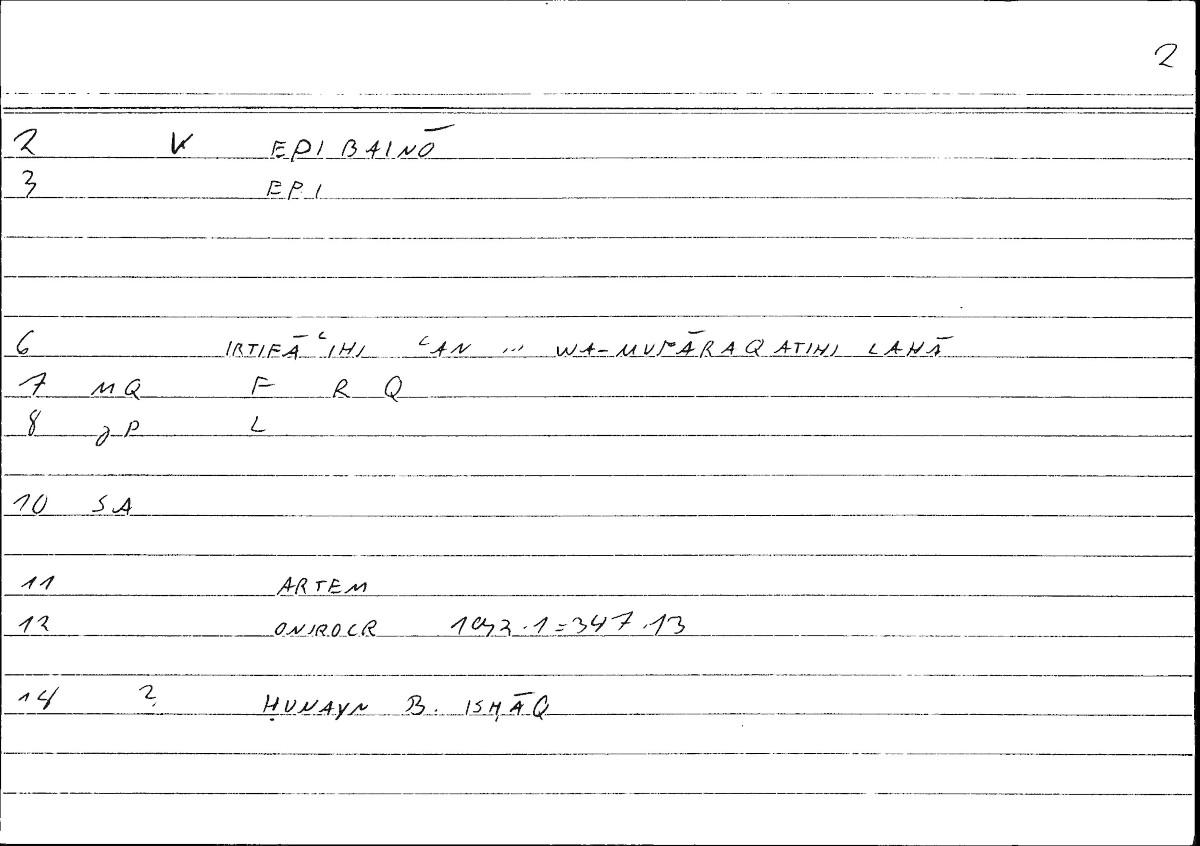 2
2 V EPIBAINŌ
3 EPI
6 IRTIFĀʿIHI ʿAN ... WA-MUFĀRAQATIHI LAHĀ
7 MQ F R Q
8 P L
10 SA
11 ARTEM
12 ONIROCR 192.1=347.13
14 ? ḤUNAYN B. ISḤĀQ